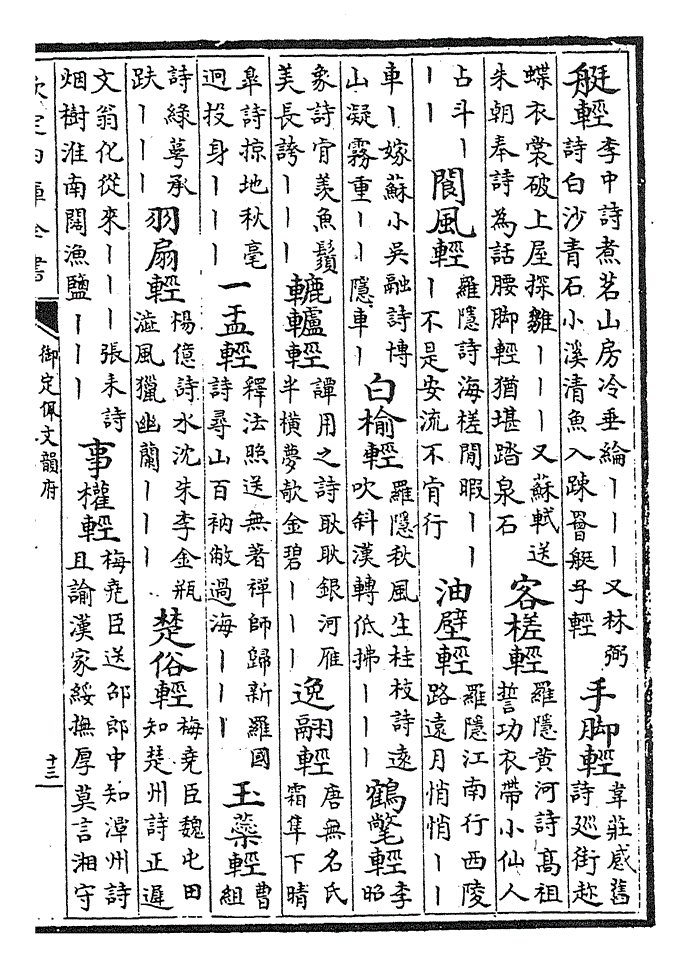 艇輕
李中詩煮茗山房冷垂綸丨丨丨又林弼
詩白沙青石小溪清魚入疎罾艇子輕
手脚輕
韋莊感舊
詩廵街趂
蝶衣裳破上屋探雛丨丨丨又蘇軾送
朱朝奉詩為話腰脚輕猶堪踏泉石
客槎輕
羅隱黄河詩高祖
誓功衣帶小仙人
占斗丨
丨丨
閬風輕
羅隱詩海槎閒暇丨丨
丨不是安流不肯行
油壁輕
羅隱江南行西陵
路遠月悄悄丨丨
車丨嫁蘇小吳融詩博
山凝霧重丨丨隱車丨
白榆輕
羅隱秋風生桂枝詩遠
吹斜漢轉低拂丨丨丨
鶴氅輕
李
昭
象詩肯羨魚鬚
美長誇丨丨丨
轆轤輕
譚用之詩耿耿銀河雁
半横夢欹金碧丨丨丨
逸翮輕
唐無名氏
霜隼下晴
臯詩掠地秋毫
迥投身丨丨丨
一盂輕
釋法照送無著禪師歸新羅國
詩尋山百衲敝過海丨丨丨
玉蘂輕
曹
組
詩綠萼承
趺丨丨丨
羽扇輕
楊億詩水沈朱李金瓶
溢風獵幽蘭丨丨丨
楚俗輕
梅堯臣魏屯田
知楚州詩正遲
文翁化從來丨丨丨張耒詩
烟樹淮南闊漁鹽丨丨丨
事權輕
梅堯臣送邵郎中知潭州詩
且諭漢家綏撫厚莫言湘守
欽定四庫全書
御定佩文韻府
十三